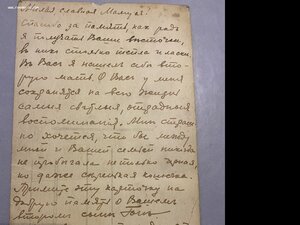 Милая славная Мамуся!
Спасибо за память, как радъ
я получать Ваши весточки,
въ нихъ столько тепла и ласки
Въ Васъ я нашелъ себѣ вто-
рую мать. О Васъ у меня
сохранятся на всю жизнь
самыя свѣтлыя, отрадныя
воспоминанія. Мнѣ страш-
но хочется, что бы между
мной и Вашей семьей никогда
не пробѣгала не только черная,
но даже сѣренькая кошечка.
Примите эту карточку на
добрую память о Вашемъ
второмъ сынѣ